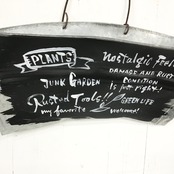 PLANTS
nostalgic Feel
JUNK GARDEN
DAMAGE AND RUST
CONDITION
is just right!
Rusted Tools!!
GREEN LIFE
my favorite
welcome!